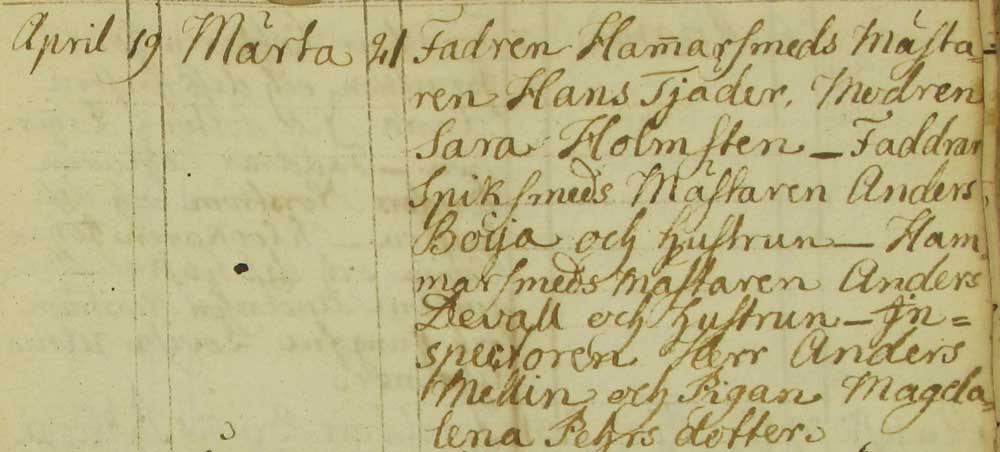 April 19 Märta 21 Fadren Ham̄arsmeds Mästa=
ren Hans Tjäder. Modren
Sara Holmsten – Faddrar
Spiksmeds Mästaren Anders
Böija och hustrun – Ham
marsmeds Mästaren Anders
Devall och hustrun – In=
spectoren Herr Anders
Mellin och Pigan Magda=
lena Pehrs dotter.